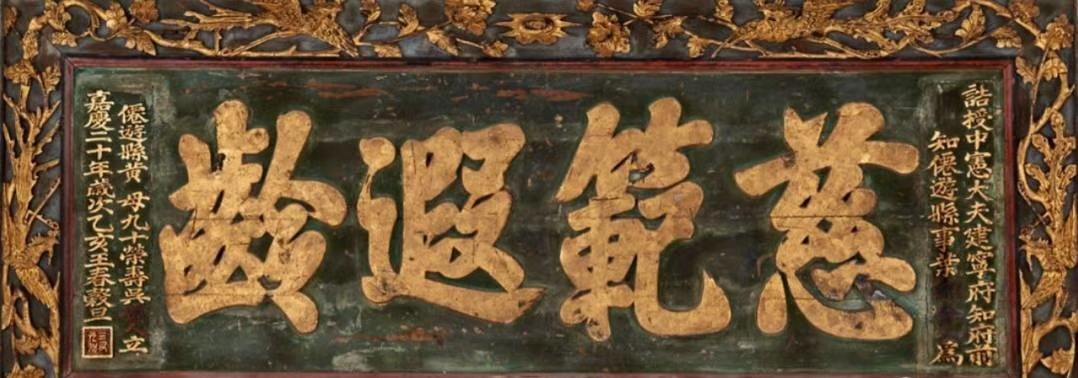 誥授中憲大夫建寧府知府前
知僊遊縣事 為
慈範遐齡
僊遊縣黃 母九十榮壽吳 立
嘉慶二十年歲次乙亥王春穀旦